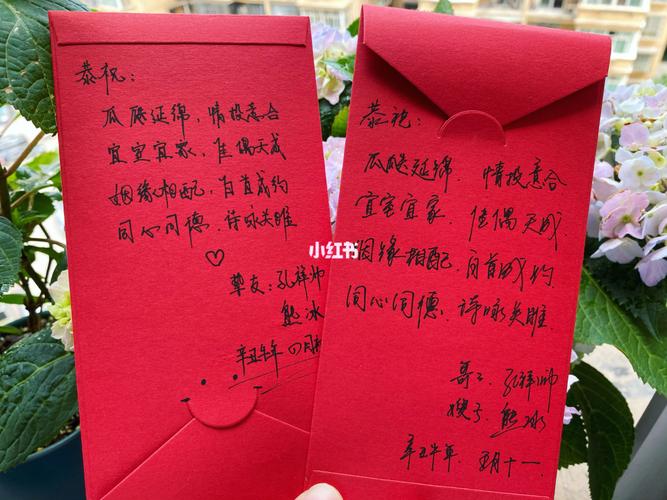 恭祝：
瓜瓞延绵，情投意合
宜室宜家，佳偶天成
姻缘相配，白首成约
同心同德，诗咏关雎
挚友：孔祥帅
熊冰
辛丑牛年 四月
小红书
恭祝：
瓜瓞延绵，情投意合
宜室宜家，佳偶天成，
姻缘相配，白首成约，
同心同德，诗咏关雎，
哥哥：孔祥帅
嫂子：熊冰
辛丑牛年．五月十一